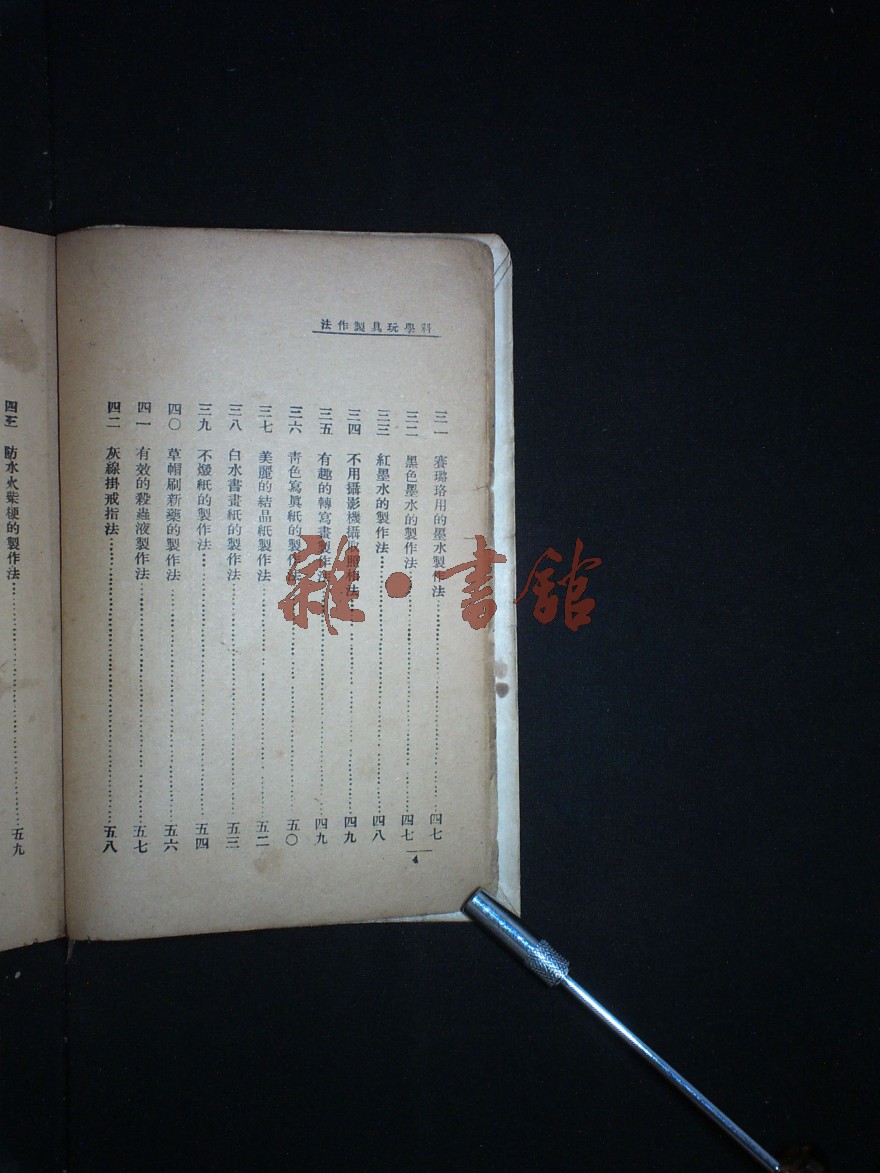 科學玩具製作法
三一 賽璐珞用的墨水製作法 四七
三二 黑色墨水的製作法 四七
三三 紅墨水的製作法 四八
三四 不用攝影機攝取照相法 四九
三五 有趣的轉寫畫製作法 四九
三六 青色寫眞紙的製作法 五〇
三七 美麗的結晶紙製作法 五二
三八 白水書畫紙的製作法 五三
三九 不燬紙的製作法 五四
四〇 草帽刷新藥的製作法 五六
四一 有效的殺蟲液製作法 五七
四二 灰線掛戒指法 五八
4
防水火柴梗的製作法 五九
雜·書館